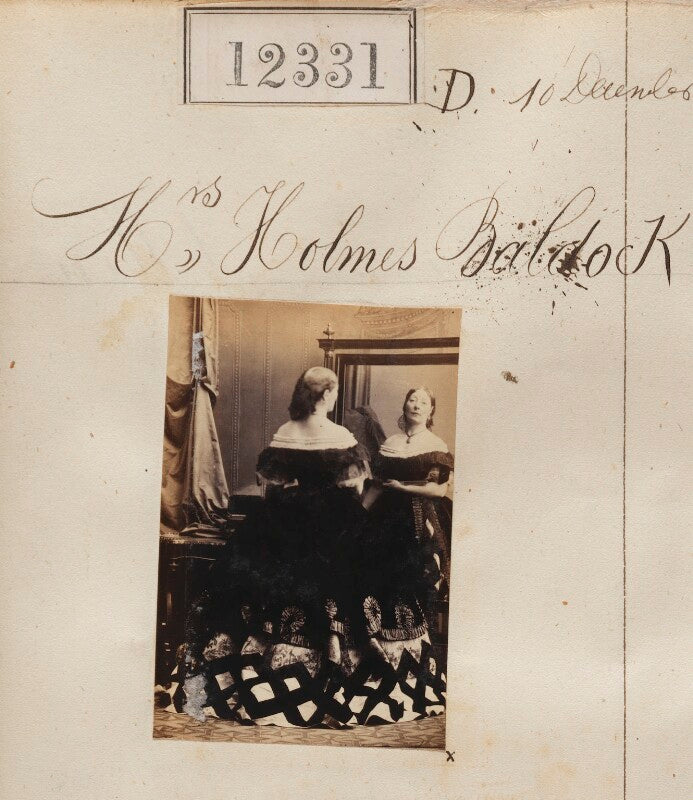 12331
D. 10 December
Mrs Holmes Baldock
x